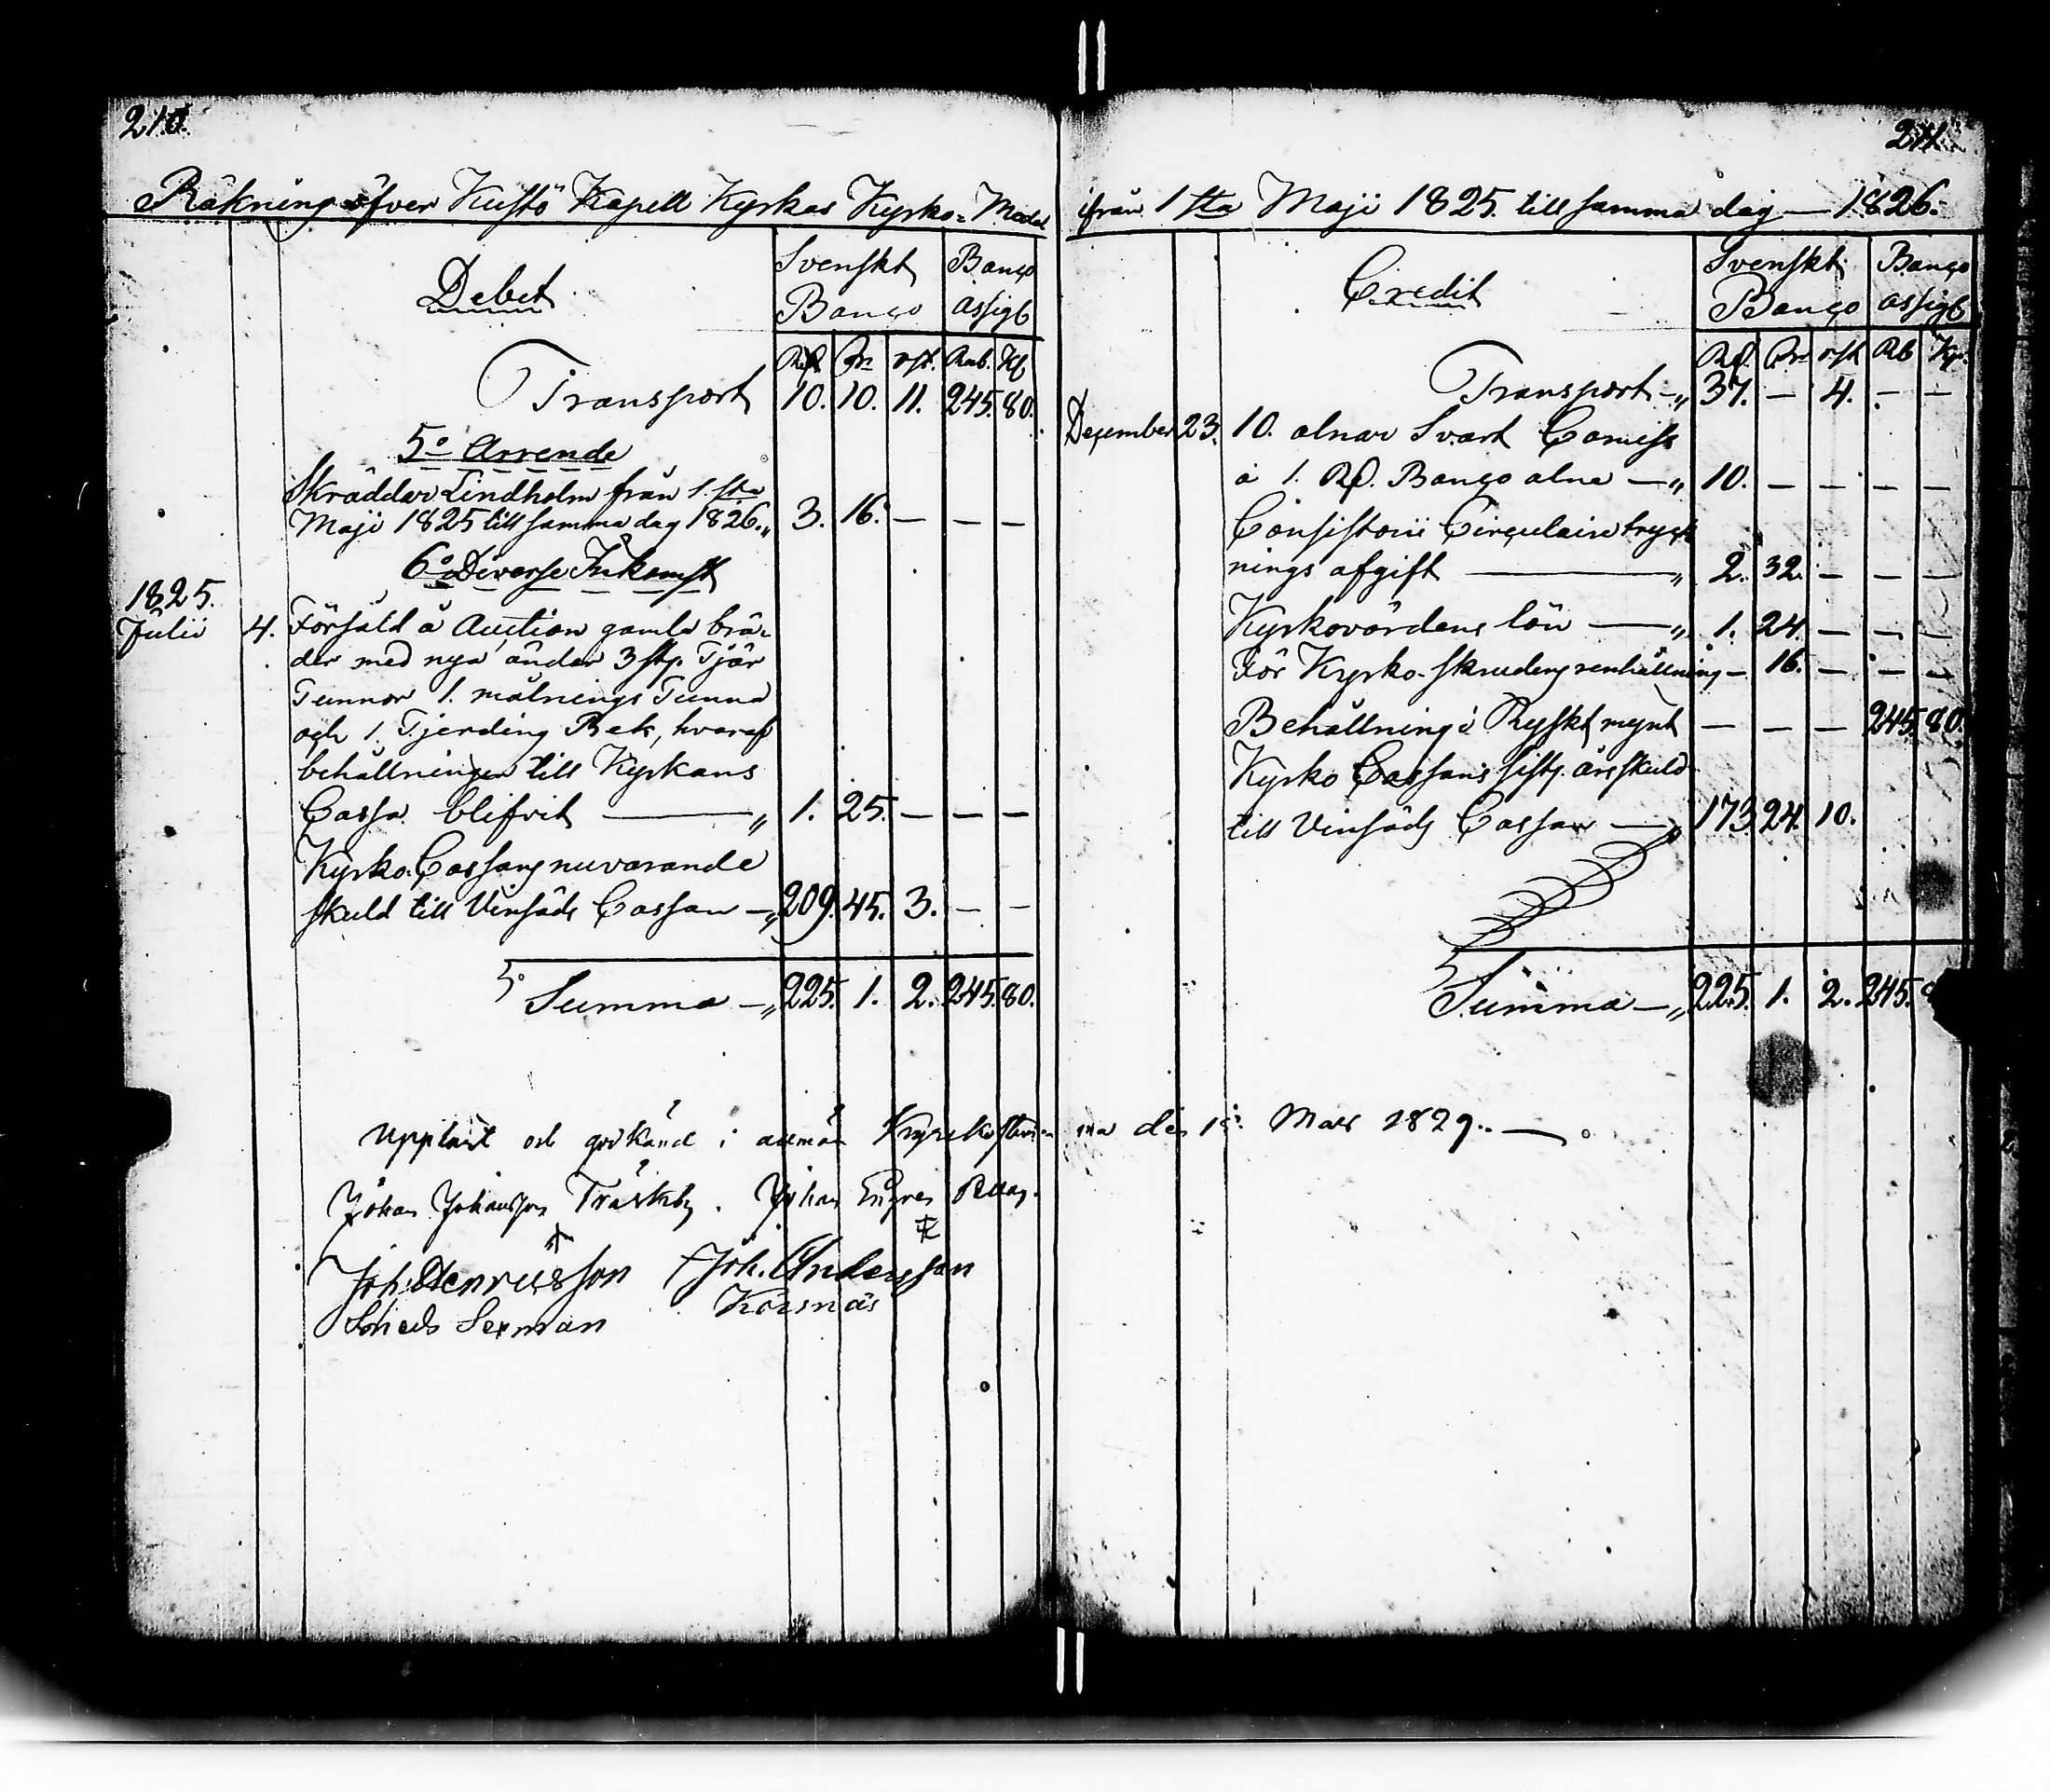 210.
Räkning öfver Kustö Kapell Kyrkas Kyrko-Medel
Debet
Svenskt Banco
Banco assigt
Rd. sk. rst. Rub. Kp
Transport 10. 10. 11. 245. 80.
5o Arrende
Skräddar Lindholm från 1. sta
Maji 1825 till samma dag 1826. „ 3. 16. — — —
6o Diverse Inkomst
1825.
Julii 4. Försåld å Auction gamla brä-
der med nya ändar 3 st. Tjär
Tunnor 1. målnings Tunna
och 1. Tjerding Bek, hvaraf
behållningen till Kyrkans
Cassa blifvit — „ 1. 25. — — —
Kyrko Cassans nuvarande
skuld till Vinsäds Cassan — „ 209. 45. 3. — —
Summa — „ 225. 1. 2. 245. 80.
Uppläst och godkänd i allmän
Johan Johansson Träskby. Johan
Joh: Henricsson Joh. Andersson
Sexman Korsnäs
211.
ifrån 1 sta Maji 1825. till samma dag — 1826.
Credit
Svenskt Banco
Banco assigt
Rd. sk. rst Rb Kp.
Transport — „ 37. — 4. — —
December 23. 10. alnar Svart
à 1. Rd. Banco aln — „ 10. — — — —
Consistorii Circulaire tryck
nings afgift — „ 2. 32. — — —
Kyrkovärdens lön — „ 1. 24. — — —
För Kyrko-skrudens renhållning — 16. — — —
Behållning i Ryskt mynt — — — 245. 80.
Kyrko Cassans sistl. års skuld
till Vinsäds Cassan — „ 173. 24. 10.
Summa — „ 225. 1. 2. 245.
Mars 1829. —